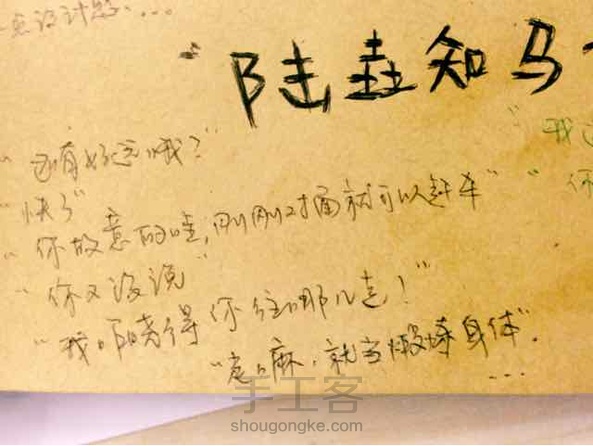 "陆垚知马
"还有好远哦？"
"快了"
"你故意的哇，刚刚对面就可以赶车"
"你又没说"
"我啷晓得你往哪儿走！"
"走嘛，就当煅炼身体"。
...
"我
"你
手工客
shougongke.com